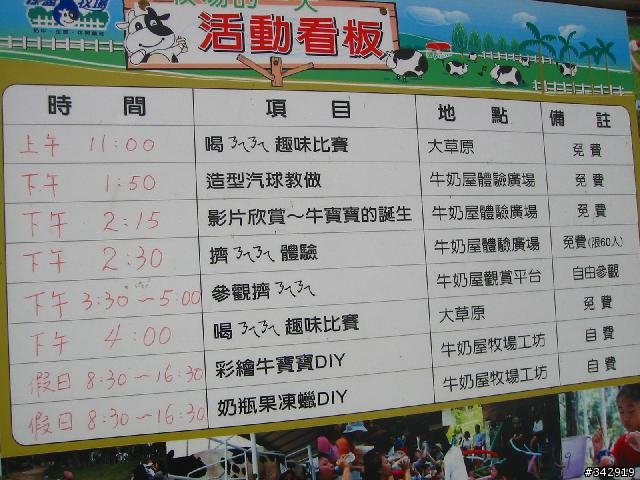 牧場的一天
活動看板
時間 項目 地點 備註
上午 11:00 喝ㄋㄟㄋㄟ趣味比賽 大草原 免費
下午 1:50 造型汽球教做 牛奶屋體驗廣場 免費
下午 2:15 影片欣賞～牛寶寶的誕生 牛奶屋體驗廣場 免費
下午 2:30 擠ㄋㄟㄋㄟ體驗 牛奶屋體驗廣場 免費(限60人)
下午 3:30～5:00 參觀擠ㄋㄟㄋㄟ 牛奶屋觀賞平台 自由參觀
下午 4:00 喝ㄋㄟㄋㄟ趣味比賽 大草原 免費
假日 8:30～16:30 彩繪牛寶寶DIY 牛奶屋牧場工坊 自費
假日 8:30～16:30 奶瓶果凍蠟DIY 牛奶屋牧場工坊 自費
#342919